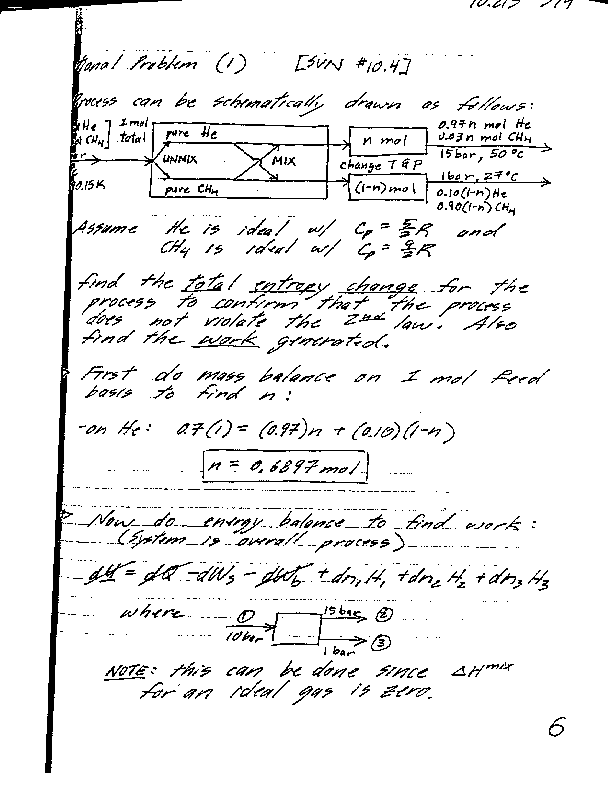 10.213
[SVN #10.4]
onal Problem (1)
rocess can be schematically drawn as follows:
He
CH4
1 mol
total
pure He
UNMIX
MIX
pure CH4
n mol
change T & P
(1-n) mol
0.97n mol He
0.03n mol CH4
15 bar, 50 °C
1 bar, 27 °C
0.10(1-n) He
0.90(1-n) CH4
0.15K
Assume He is ideal w/ Cp = 5/2 R and
CH4 is ideal w/ Cp = 9/2 R
find the total entropy change for the
process to confirm that the process
does not violate the 2nd law. Also
find the work generated.
First do mass balance on 1 mol feed
basis to find n:
-on He: 0.7(1) = (0.97)n + (0.10)(1-n)
n = 0.6897 mol
Now do energy balance to find work:
(System is overall process)
dU = dQ - dWs - dWb + dn1 H1 + dn2 H2 + dn3 H3
where
①
10 bar
15 bar ②
1 bar ③
NOTE: this can be done since ΔH^mix
for an ideal gas is zero.
6